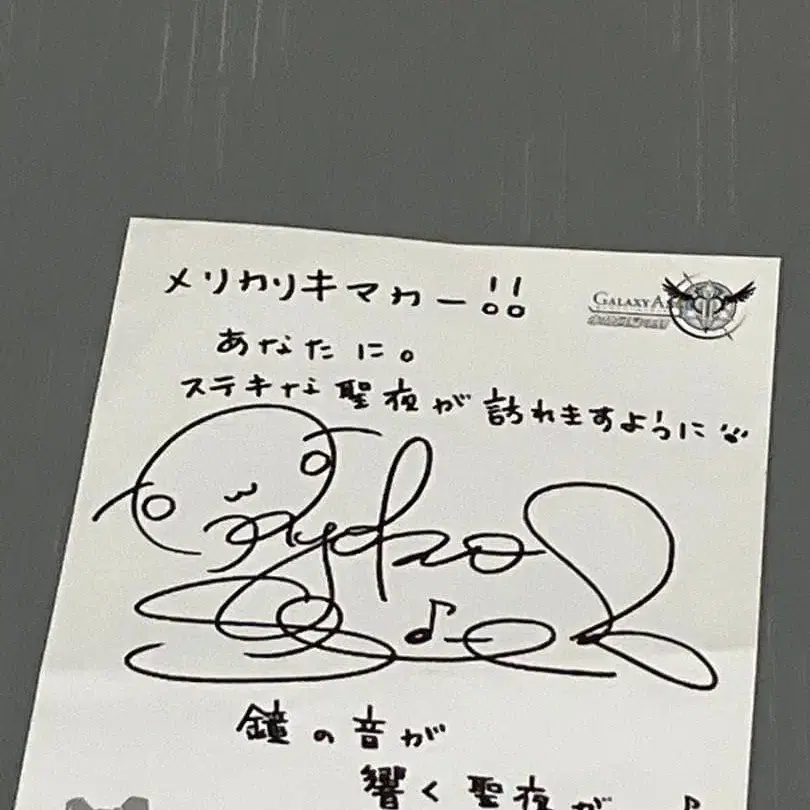 メリカリキマカー!!
GALAXY A
あなたに。
ステキな聖夜が訪れますように
鐘の音が
響く聖夜が